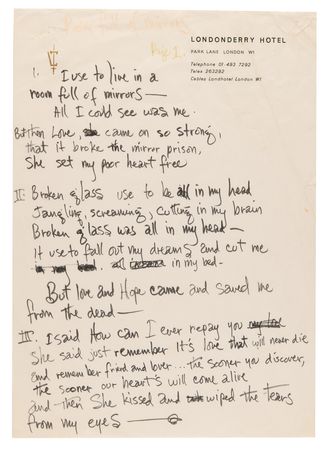 Room full of mirrors
LONDONDERRY HOTEL
PARK LANE LONDON W1
Telephone 01-493 7292
Telex 263292
Cables Landhotel London W1
Pg 1.
1. I use to live in a
room full of mirrors—
All I could see was me.
But then Love, came on so strong,
that it broke the mirror prison,
She set my poor heart free
II: Broken glass use to be all in my head
Jangling, screaming, cutting in my brain
Broken glass was all in my head—
it use to fall out my dreams and cut me
in my bed—
But love and Hope came and saved me
from the dead—
III. I said How can I ever repay you
She said just remember it's love that will never die
and remember friend and lover... the sooner you discover,
the sooner our heart's will come alive
and then She kissed and wiped the tears
from my eyes